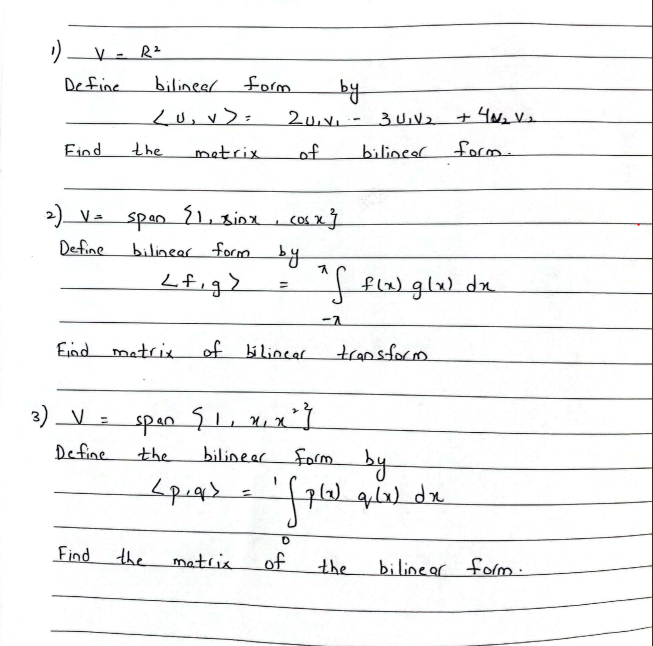 1) V = R²
Define bilinear form by
<u, v> = 2u₁v₁ - 3u₁v₂ + 4u₂v₂
Find the matrix of bilinear form.
2) V = span {1, sinx, cosx}
Define bilinear form by
<f, g> = π∫ f(x) g(x) dx
-π
Find matrix of bilinear transform
3) V = span {1, x, x²}
Define the bilinear form by
<p, q> = 1∫ p(x) q(x) dx
0
Find the matrix of the bilinear form.